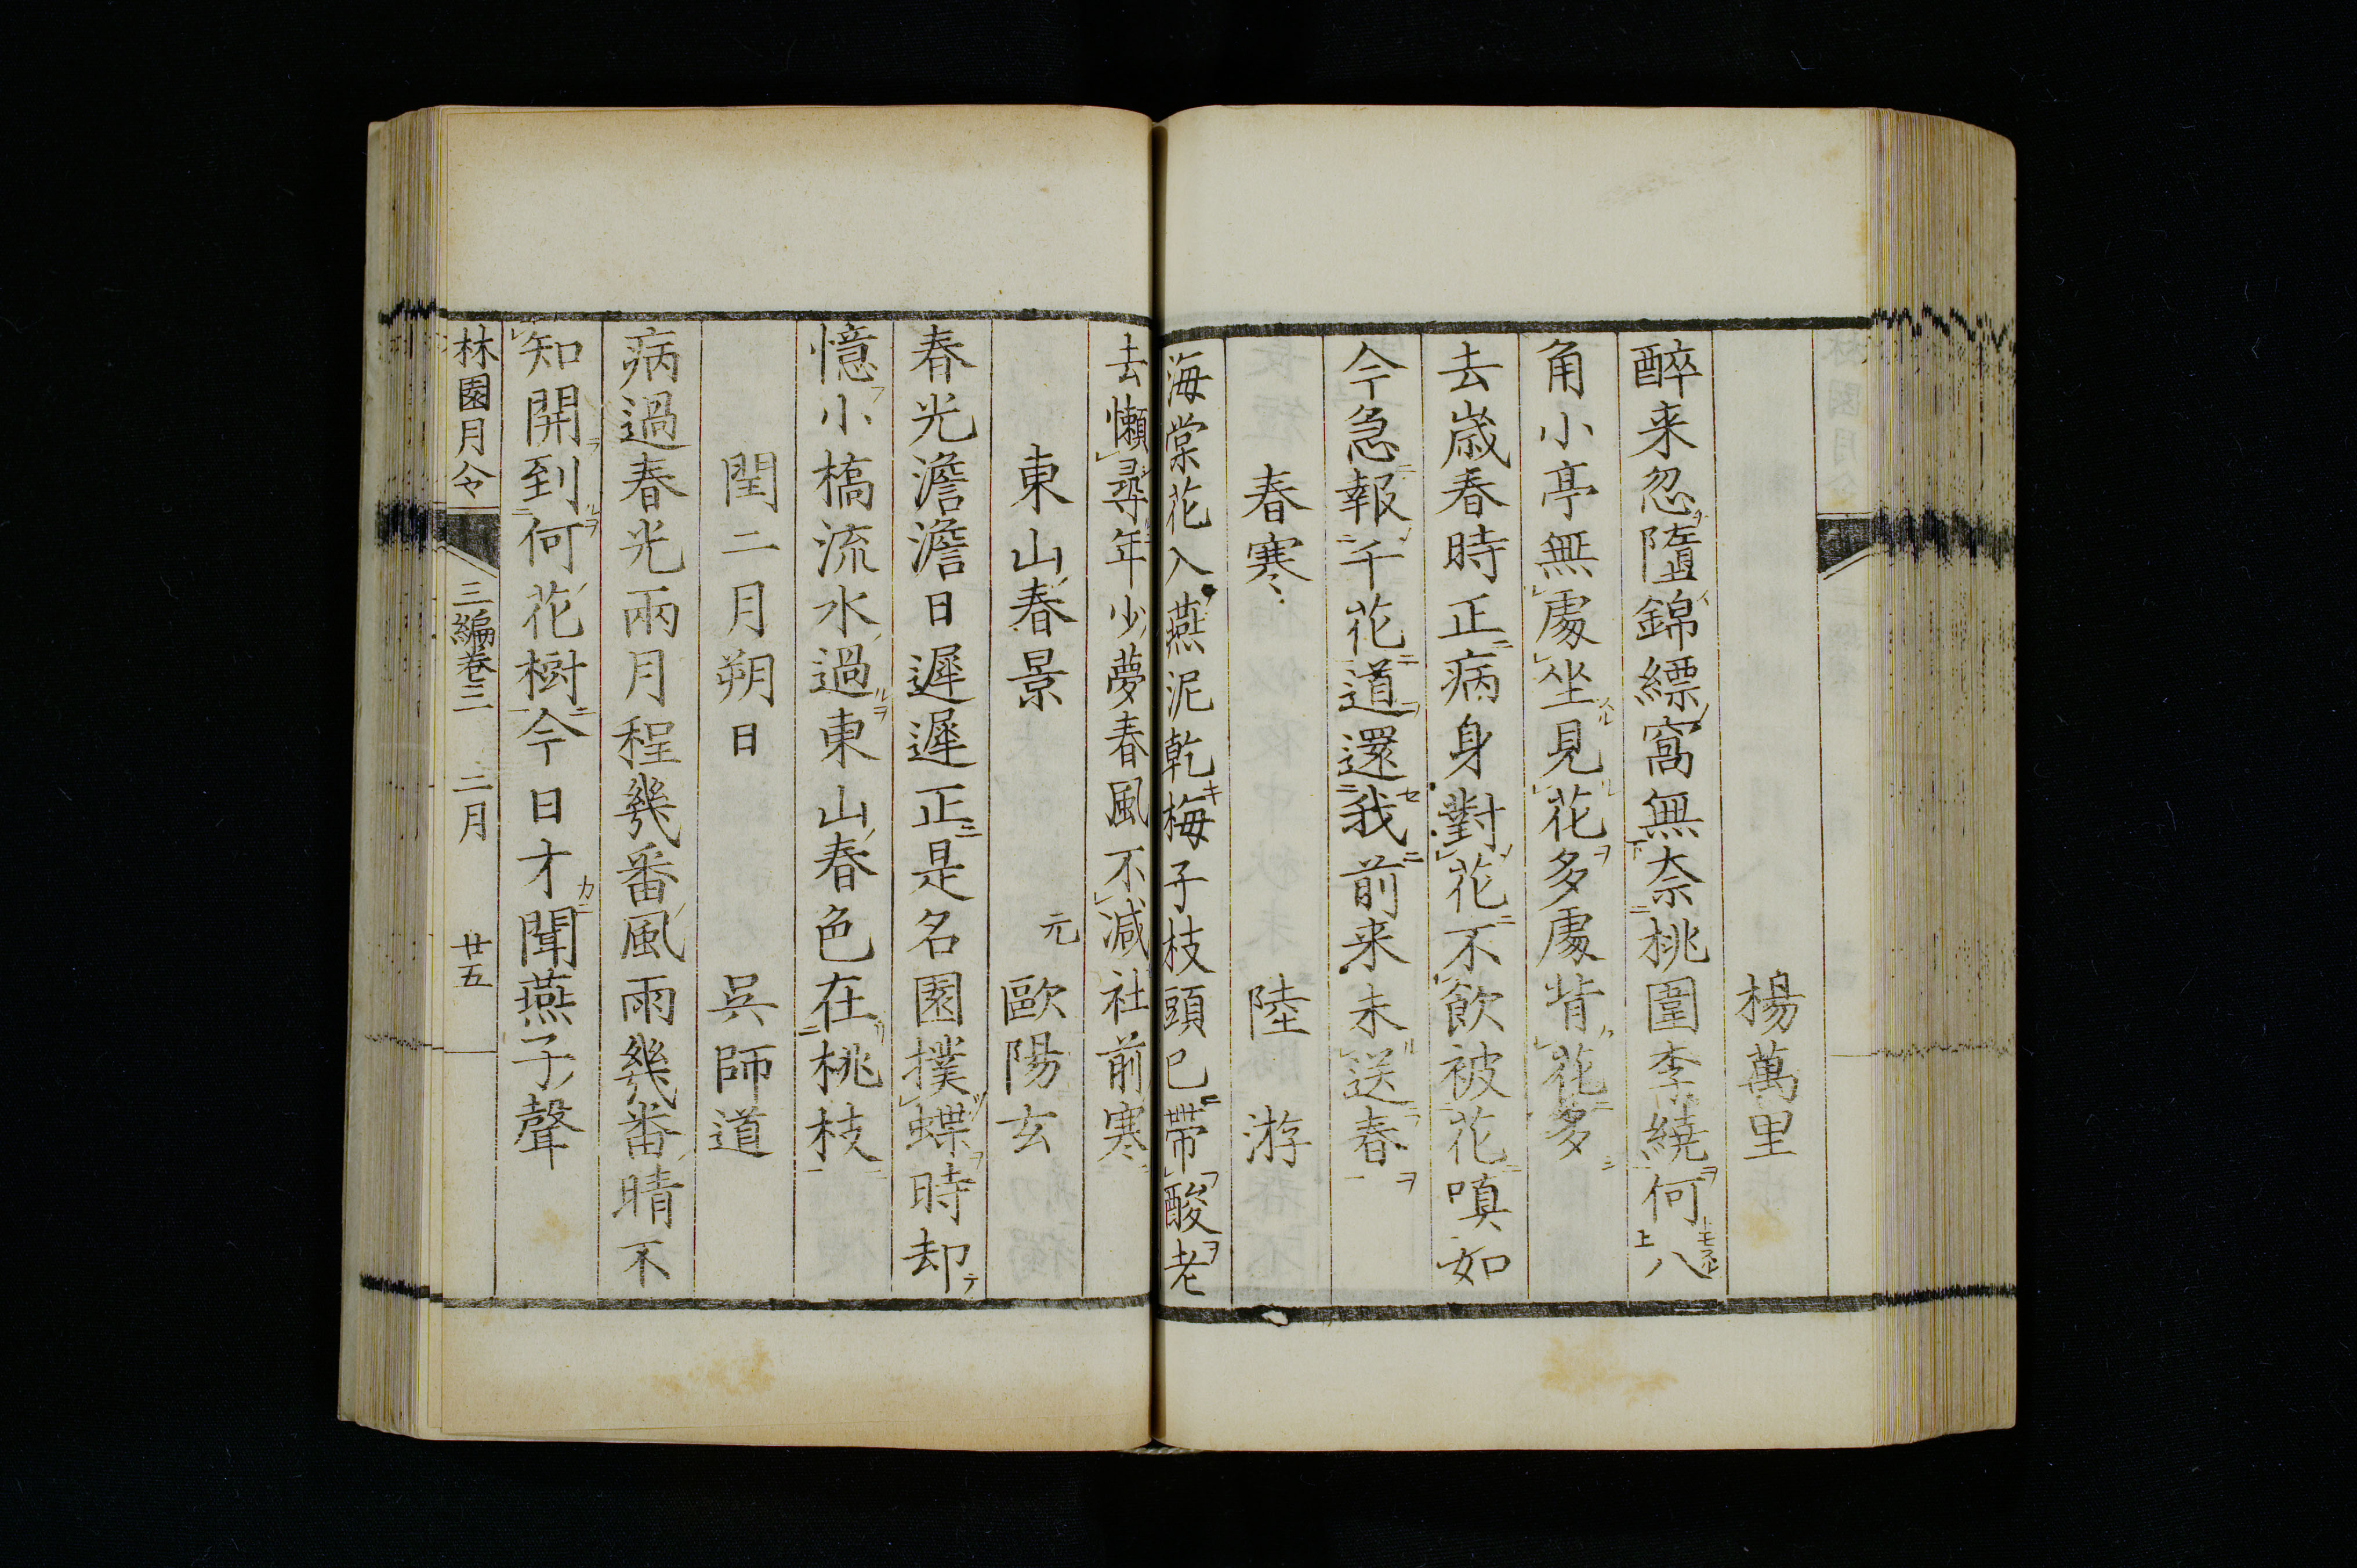 楊萬里
醉来忽墮錦縹窩無奈桃圍李繞何八
角小亭無處坐見花多處背花多
去歳春時正病身對花不飲被花嗔如
今急報千花道還我前来未送春
春寒 陸游
海棠花入燕泥乾梅子枝頭已帶酸老
去懶尋年少夢春風不減社前寒
東山春景 元 歐陽玄
春光澹澹日遲遲正是名園撲蝶時却
憶小橋流水過東山春色在桃枝
閏二月朔日 呉師道
病過春光兩月程幾番風雨幾番晴不
知開到何花樹今日才聞燕子聲
林園月令 三編卷三 二月 廿五